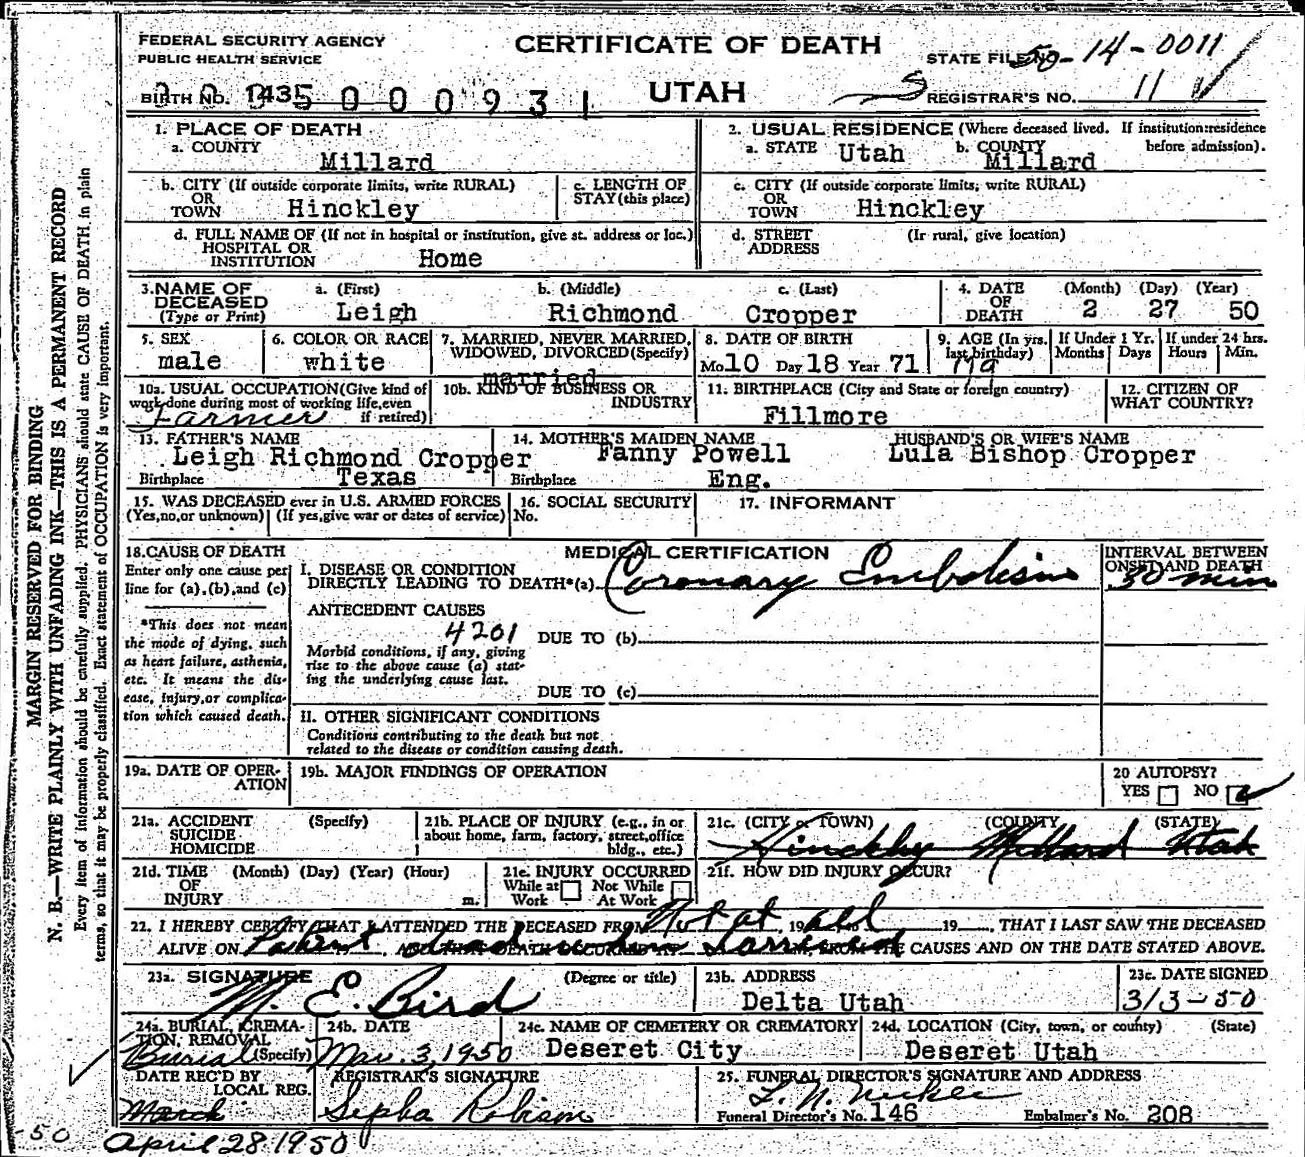 FEDERAL SECURITY AGENCY
PUBLIC HEALTH SERVICE
CERTIFICATE OF DEATH
UTAH
STATE FILE NO. 50-14-0011
BIRTH NO. 1435 000931
REGISTRAR'S NO. 11
MARGIN RESERVED FOR BINDING
N. B.—WRITE PLAINLY WITH UNFADING INK—THIS IS A PERMANENT RECORD
Every item of information should be carefully supplied. PHYSICIANS should state CAUSE OF DEATH, in plain
terms, so that it may be properly classified. Exact statement of OCCUPATION is very important.
1. PLACE OF DEATH
a. COUNTY
Millard
2. USUAL RESIDENCE (Where deceased lived. If institution:residence before admission).
a. STATE Utah b. COUNTY Millard
b. CITY (If outside corporate limits, write RURAL)
OR
TOWN Hinckley
c. LENGTH OF
STAY (this place)
c. CITY (If outside corporate limits, write RURAL)
OR
TOWN Hinckley
d. FULL NAME OF (If not in hospital or institution, give st. address or loc.)
HOSPITAL OR
INSTITUTION Home
d. STREET (If rural, give location)
ADDRESS
3. NAME OF
DECEASED
(Type or Print)
a. (First) b. (Middle) c. (Last)
Leigh Richmond Cropper
4. DATE
OF
DEATH
(Month) (Day) (Year)
2 27 50
5. SEX
male
6. COLOR OR RACE
white
7. MARRIED, NEVER MARRIED,
WIDOWED, DIVORCED (Specify)
married
8. DATE OF BIRTH
Mo 10 Day 18 Year 71
9. AGE (In yrs.
last birthday)
If Under 1 Yr.
Months Days
If under 24 hrs.
Hours Min.
10a. USUAL OCCUPATION (Give kind of
work done during most of working life, even
if retired)
Farmer
10b. KIND OF BUSINESS OR
INDUSTRY
11. BIRTHPLACE (City and State or foreign country)
Fillmore
12. CITIZEN OF
WHAT COUNTRY?
13. FATHER'S NAME
Leigh Richmond Cropper
Birthplace Texas
14. MOTHER'S MAIDEN NAME
Fanny Powell
Birthplace Eng.
HUSBAND'S OR WIFE'S NAME
Lula Bishop Cropper
15. WAS DECEASED ever in U.S. ARMED FORCES
(Yes,no,or unknown) (If yes,give war or dates of service)
16. SOCIAL SECURITY
No.
17. INFORMANT
18. CAUSE OF DEATH
Enter only one cause per
line for (a), (b), and (c)
*This does not mean
the mode of dying, such
as heart failure, asthenia,
etc. It means the dis-
ease, injury, or complica-
tion which caused death.
MEDICAL CERTIFICATION
I. DISEASE OR CONDITION
DIRECTLY LEADING TO DEATH*(a) Coronary Embolism
INTERVAL BETWEEN
ONSET AND DEATH
30 min
ANTECEDENT CAUSES
4201 DUE TO (b)
Morbid conditions, if any, giving
rise to the above cause (a) stat-
ing the underlying cause last.
DUE TO (c)
II. OTHER SIGNIFICANT CONDITIONS
Conditions contributing to the death but not
related to the disease or condition causing death.
19a. DATE OF OPER-
ATION
19b. MAJOR FINDINGS OF OPERATION
20 AUTOPSY?
YES NO
21a. ACCIDENT (Specify)
SUICIDE
HOMICIDE
21b. PLACE OF INJURY (e.g., in or
about home, farm, factory, street, office
bldg., etc.)
21c. (CITY or TOWN) (COUNTY) (STATE)
Hinckley Millard Utah
21d. TIME (Month) (Day) (Year) (Hour)
OF
INJURY m.
21e. INJURY OCCURRED
While at Work Not While At Work
21f. HOW DID INJURY OCCUR?
22. I HEREBY CERTIFY THAT I ATTENDED THE DECEASED FROM Not at all, 19 , 19 , THAT I LAST SAW THE DECEASED
ALIVE ON Patient dead when I arrived, FROM THE CAUSES AND ON THE DATE STATED ABOVE.
23a. SIGNATURE (Degree or title)
M. E. Bird
23b. ADDRESS
Delta Utah
23c. DATE SIGNED
3/3-50
24a. BURIAL, CREMA-
TION, REMOVAL
(Specify)
Burial
24b. DATE
Mar. 3, 1950
24c. NAME OF CEMETERY OR CREMATORY
Deseret City
24d. LOCATION (City, town, or county) (State)
Deseret Utah
DATE REC'D BY
LOCAL REG.
March
REGISTRAR'S SIGNATURE
25. FUNERAL DIRECTOR'S SIGNATURE AND ADDRESS
Funeral Director's No. 146 Embalmer's No. 208
-50 April 28 1950